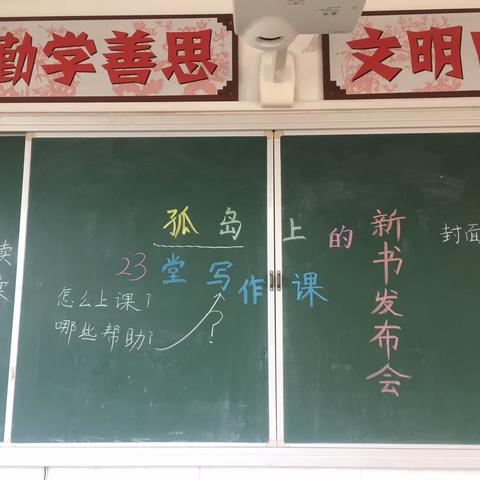 勤学善思
文明
孤岛上的
23堂写作课
怎么上课?
哪些帮助?
?
新书发布会
封面
读